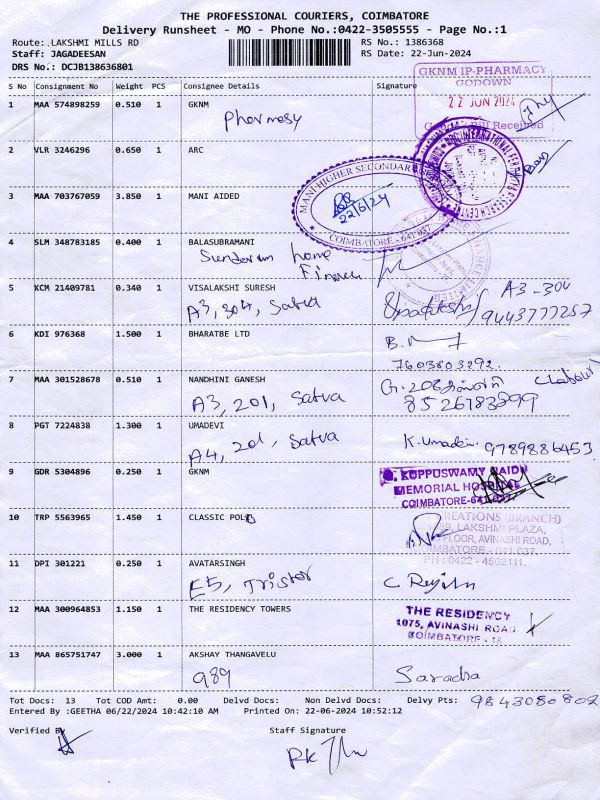 THE PROFESSIONAL COURIERS, COIMBATORE
Delivery Runsheet - MO - Phone No.:0422-3505555 - Page No.:1
Route: LAKSHMI MILLS RD RS No.: 1386368
Staff: JAGADEESAN RS Date: 22-Jun-2024
DRS No.: DCJB138636801
S No Consignment No Weight PCS Consignee Details Signature
GKNM IP-PHARMACY
GODOWN
22 JUN 2024
Bill Received
1 MAA 574898259 0.510 1 GKNM
Pharmasy
2 VLR 3246296 0.650 1 ARC
3 MAA 703767059 3.850 1 MANI AIDED
MANI HIGHER SECONDARY
22/6/24
COIMBATORE - 641 037
4 SLM 348783185 0.400 1 BALASUBRAMANI
Sundaram home
Finance
5 KCM 21409781 0.340 1 VISALAKSHI SURESH
A3, 304, Satva
A3 - 304
9443777257
6 KDI 976368 1.500 1 BHARATBE LTD
7603803292.
7 MAA 301528678 0.510 1 NANDHINI GANESH
A3, 201, Satva
(Labour)
8526783899
8 PGT 7224838 1.300 1 UMADEVI
A4, 201, Satva
K.Umadevi 9789886453
9 GDR 5304896 0.250 1 GKNM
G. KUPPUSWAMY NAIDU
MEMORIAL HOSPITAL
COIMBATORE-641
10 TRP 5563965 1.450 1 CLASSIC POLO
CREATIONS (BRANCH)
LAKSHMI PLAZA,
FLOOR, AVINASHI ROAD,
COIMBATORE - 641 037.
PH : 0422 - 4502111.
11 DPI 301221 0.250 1 AVATARSINGH
E5, Tristar
12 MAA 300964853 1.150 1 THE RESIDENCY TOWERS
THE RESIDENCY
1075, AVINASHI ROAD
COIMBATORE - 18
13 MAA 865751747 3.000 1 AKSHAY THANGAVELU
989
Saradha
Tot Docs: 13 Tot COD Amt: 0.00 Delvd Docs: Non Delvd Docs: Delvy Pts:
9843080802
Entered By :GEETHA 06/22/2024 10:42:10 AM Printed On: 22-06-2024 10:52:12
Verified By Staff Signature